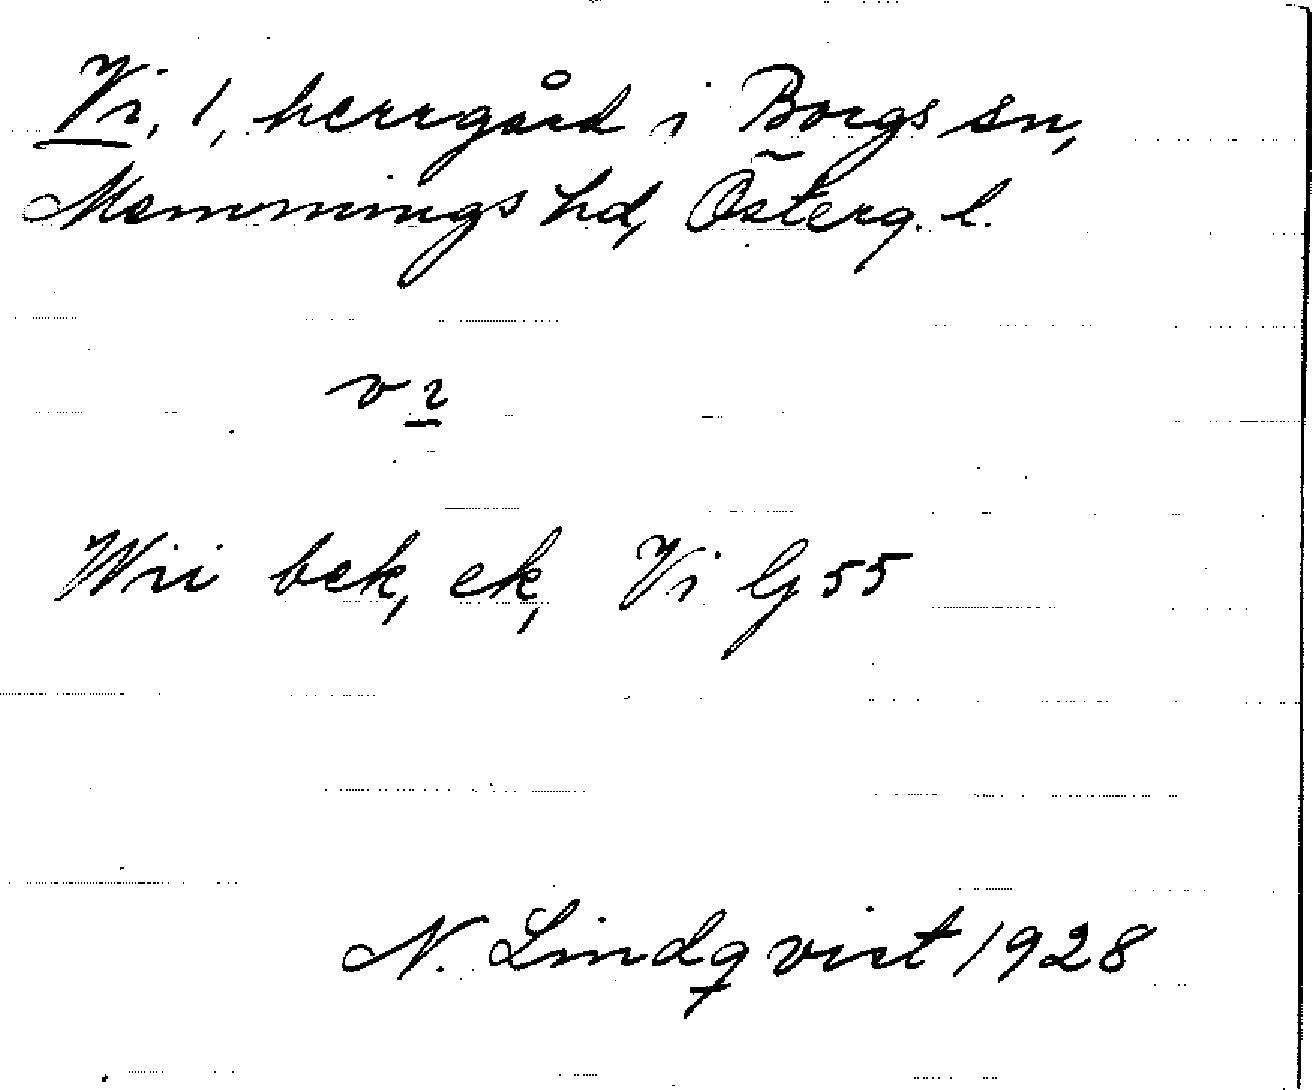 Vi, 1, herrgård i Borgs sn,
Memmings hd, Österg. l.
vi
Wii bek, ek, Vi Gj 55
N. Lindqvist 1928